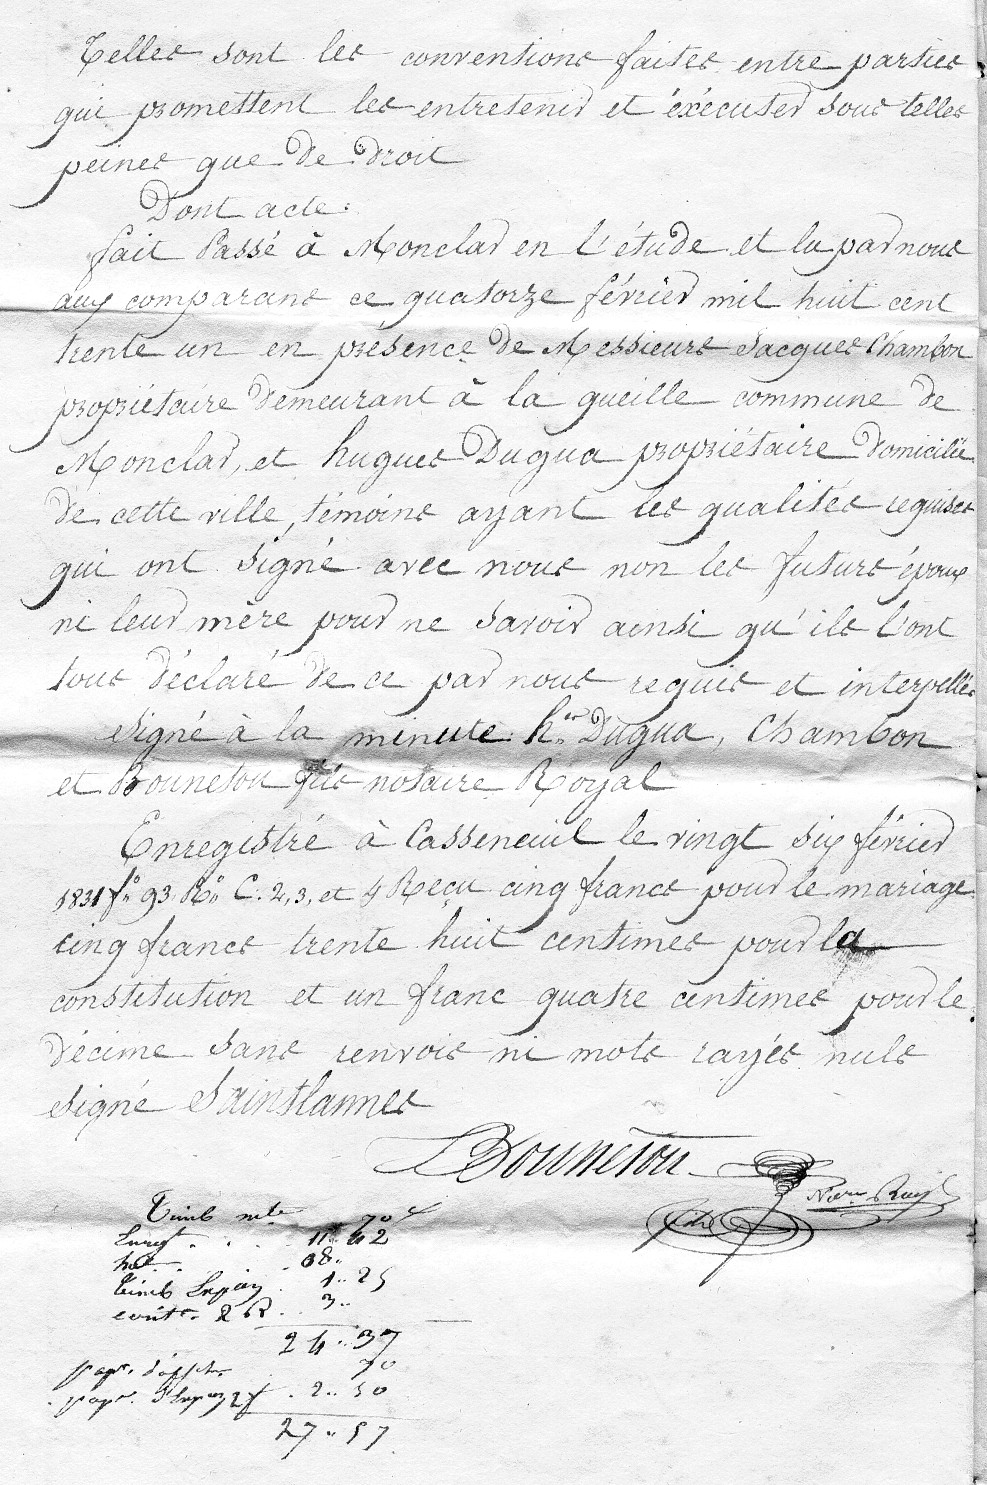 Telles sont les conventions faites entre parties
qui promettent les entretenir et éxécuter sous telles
peines que de droit
Dont acte.
fait Passé à Monclar en l'étude et lu par nous
aux comparans ce quatorze février mil huit cent
trente un en présence de Messieurs Jacques Chambon
propriétaire demeurant à la gueille commune de
Monclar, et hugues Dugua propriétaire domicilié
de cette ville, témoins ayant les qualités requises
qui ont signé avec nous non les futurs époux
ni leur mère pour ne savoir ainsi qu'ils l'ont
tous déclaré de ce par nous requis et interpellés
signé à la minute h.er Dugua, Chambon
et Bouneton fils notaire Royal
Enregistré à Casseneuil le vingt six février
1831 f.o 93 R.o C. 2, 3, et 4 Reçu cinq francs pour le mariage
cinq francs trente huit centimes pour la
constitution et un franc quatre centimes pour le
décime sans renvois ni mots rayés nuls
signé Saintlannes
Bouneton
fils Nore Royal
Timb mte 70 c
Enregt. 11.. 42
08..
Timb 1.. 25
3..
24.. 37
pap. 70
pap. 2.. 50
27.. 57